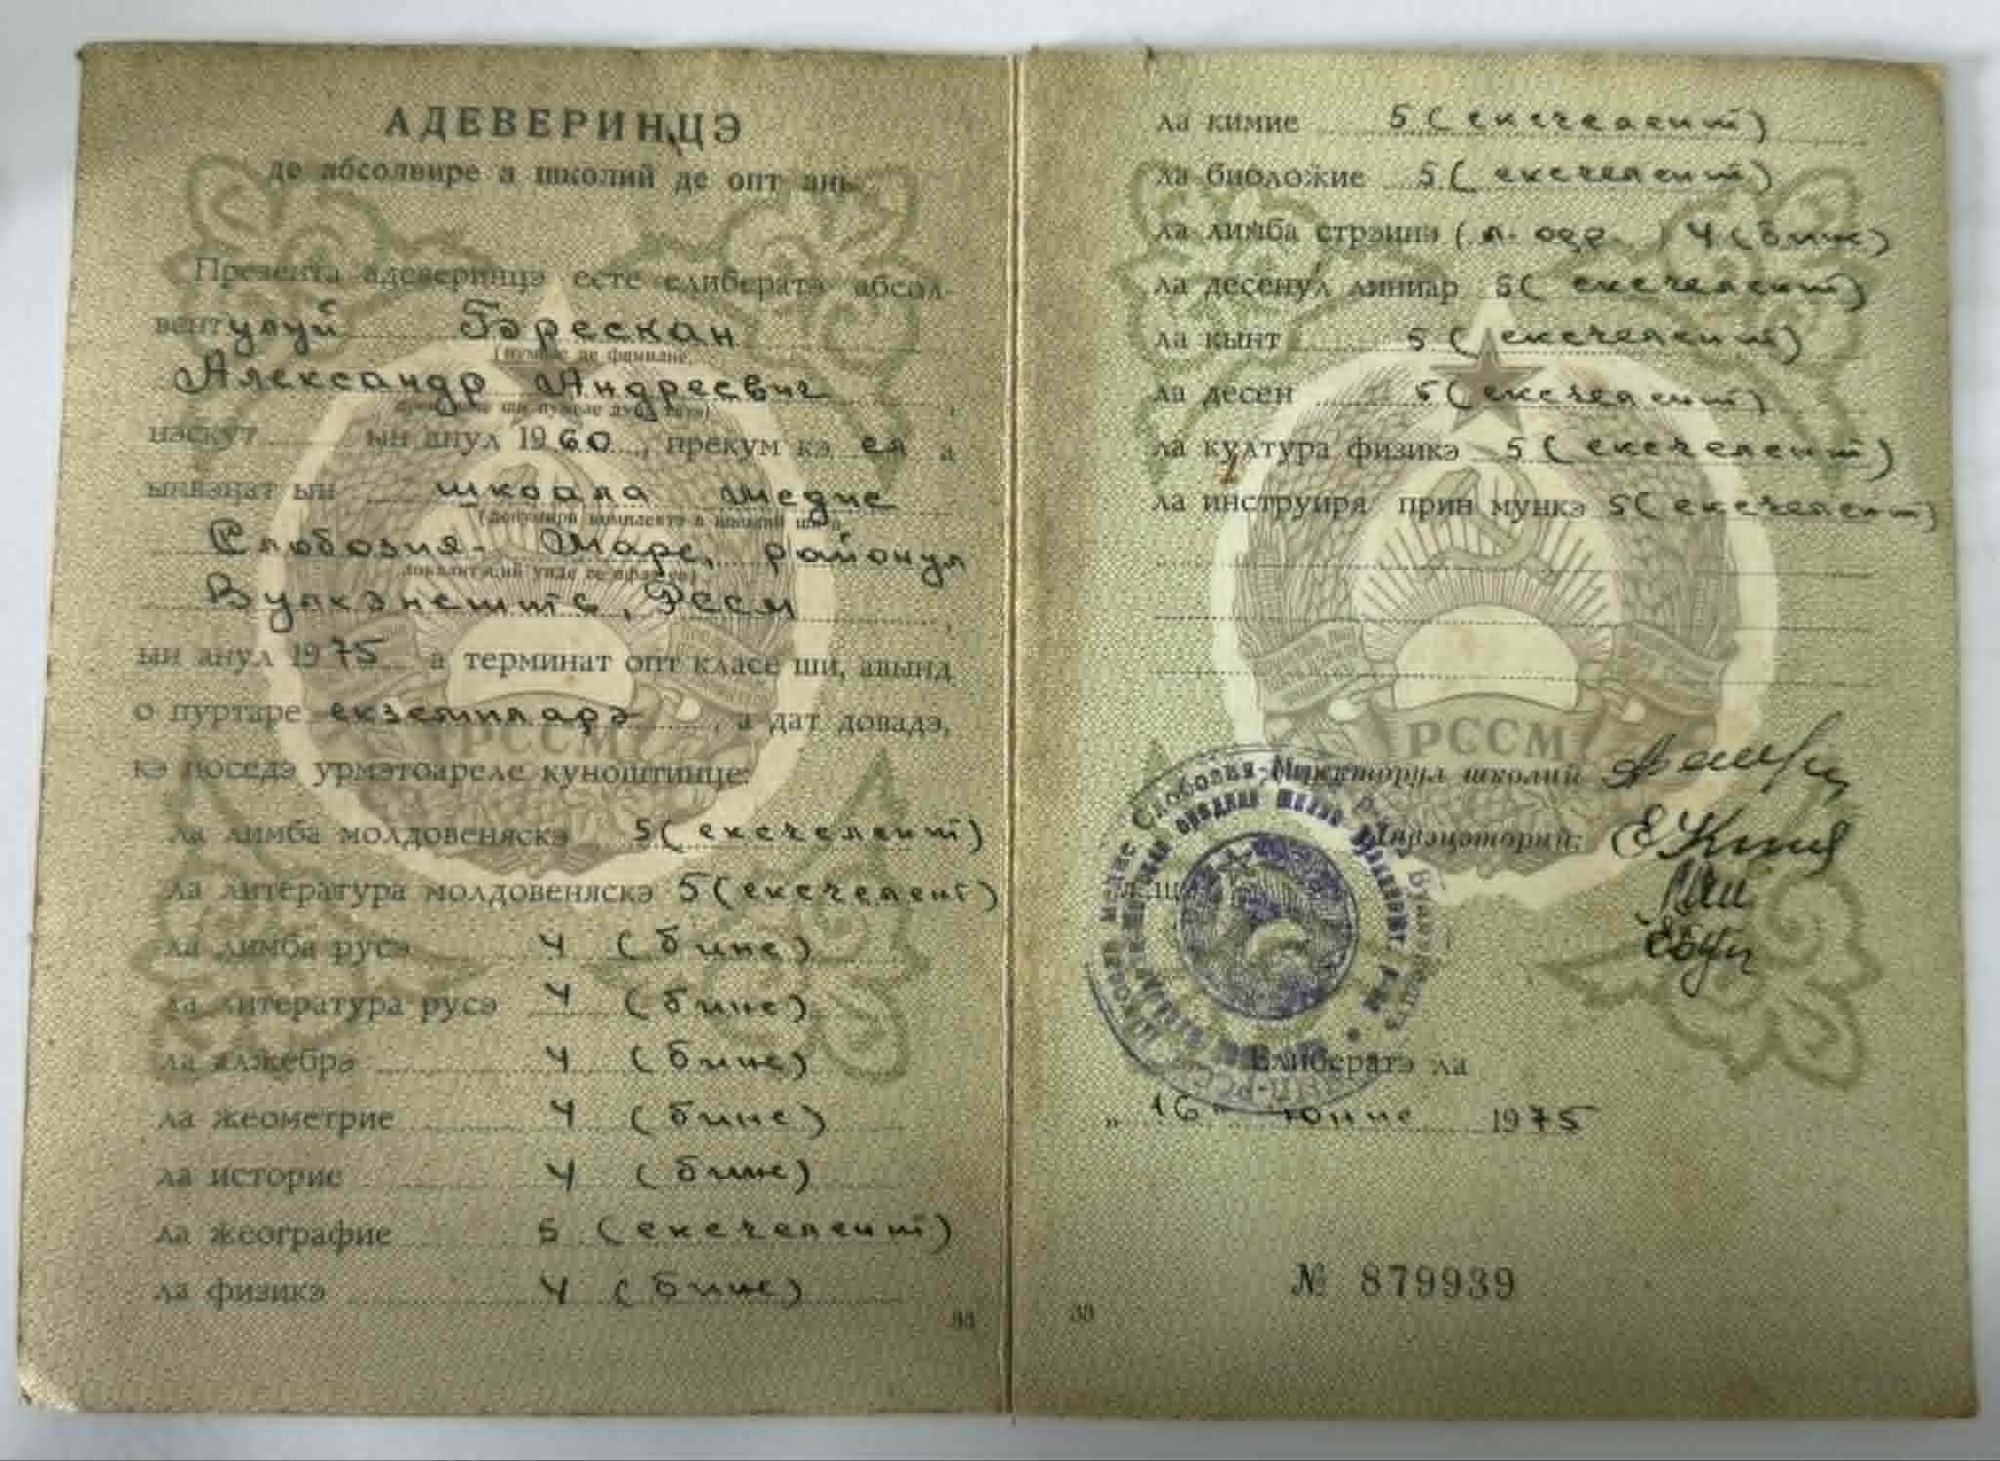 АДЕВЕРИНЦЭ
де абсолвире а школий де опт ань
Презента адеверинцэ есте елибератэ абсол-
вентулуй Бэрескан
(нумеле де фамилие,
Александр Андреевич
нэскут ын анул 1960, прекум кэ ел а
ынвэцат ын школа медие
(денумиря комплектэ а школий ши а
Слобозия-Маре, районул
локалитэций унде се афлэ еа)
Вулкэнешть, РССМ
ын анул 1975 а терминат опт класе ши, авынд
о пуртаре екземпларэ, а дат довадэ,
кэ поседэ урмэтоареле куноштинце:
ла лимба молдовеняскэ 5 (екчелент)
ла литература молдовеняскэ 5 (екчелент)
ла лимба русэ 4 (бине)
ла литература русэ 4 (бине)
ла алжебрэ 4 (бине)
ла жеометрие 4 (бине)
ла историе 4 (бине)
ла жеографие 5 (екчелент)
ла физикэ 4 (бине)
33
ла кимие 5 (екчелент)
ла биоложие 5 (екчелент)
ла лимба стрэинэ (л. фр.) 4 (бине)
ла десенул линиар 5 (екчелент)
ла кынт 5 (екчелент)
ла десен 5 (екчелент)
ла култура физикэ 5 (екчелент)
ла инструиря прин мункэ 5 (екчелент)
РССМ
Директорул школий
Ынвэцэторий:
Л. Ш.
Елибератэ ла
„16" юние 1975
№ 879939
33